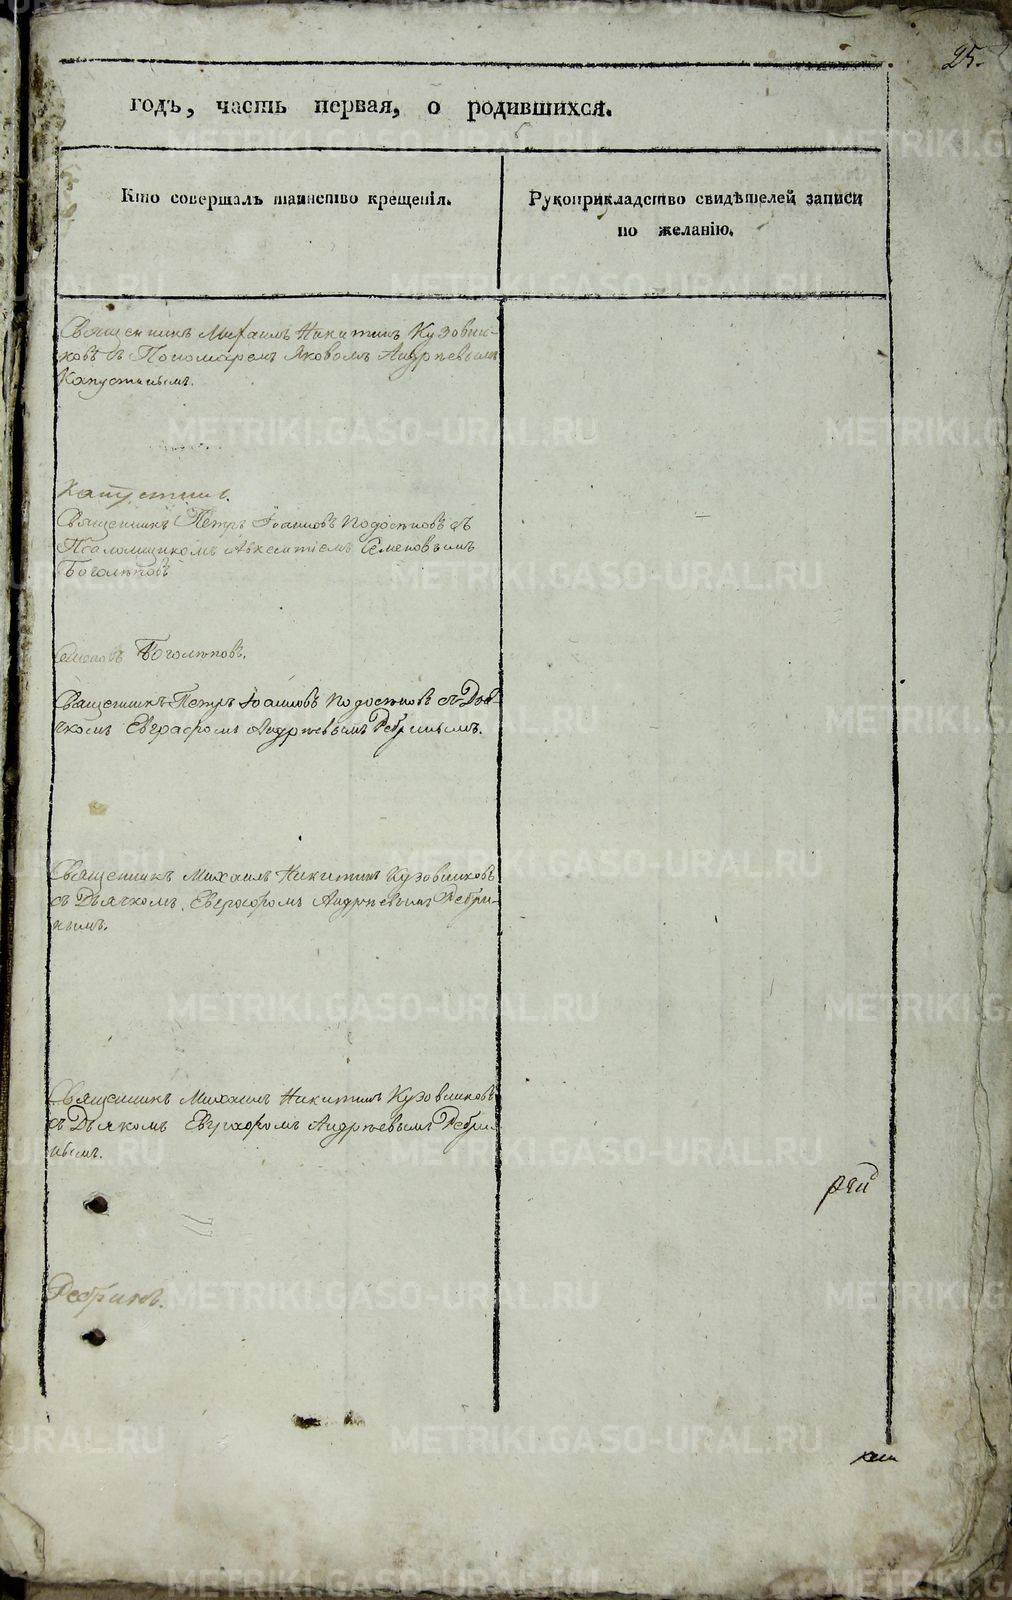 25.
годъ, часть первая, о родившихся.
Кто совершалъ таинство крещенія.
Рукоприкладство свидѣтелей записи
по желанію.
Священникъ Михаилъ Никитинъ Кузовни-
ковъ съ Пономаремъ Яковомъ Андрѣевымъ
Капустинымъ.
Капустинъ.
Священникъ Петръ Іоанновъ Подосеновъ съ
Псаломщикомъ Авксентіемъ Семеновымъ
Боголѣповъ
Боголѣповъ.
Священникъ Петръ Іоанновъ Подосеновъ съ Дья-
чкомъ Евграфомъ Андрѣевымъ Ребринымъ.
Священникъ Михаилъ Никитинъ Кузовниковъ
съ Дьячкомъ Евграфомъ Андрѣевымъ Ребри-
нымъ.
Священникъ Михаилъ Никитинъ Кузовниковъ
съ Дьячкомъ Евграфомъ Андрѣевымъ Ребри-
нымъ.
Ребринъ.
METRIKI.GASO-URAL.RU